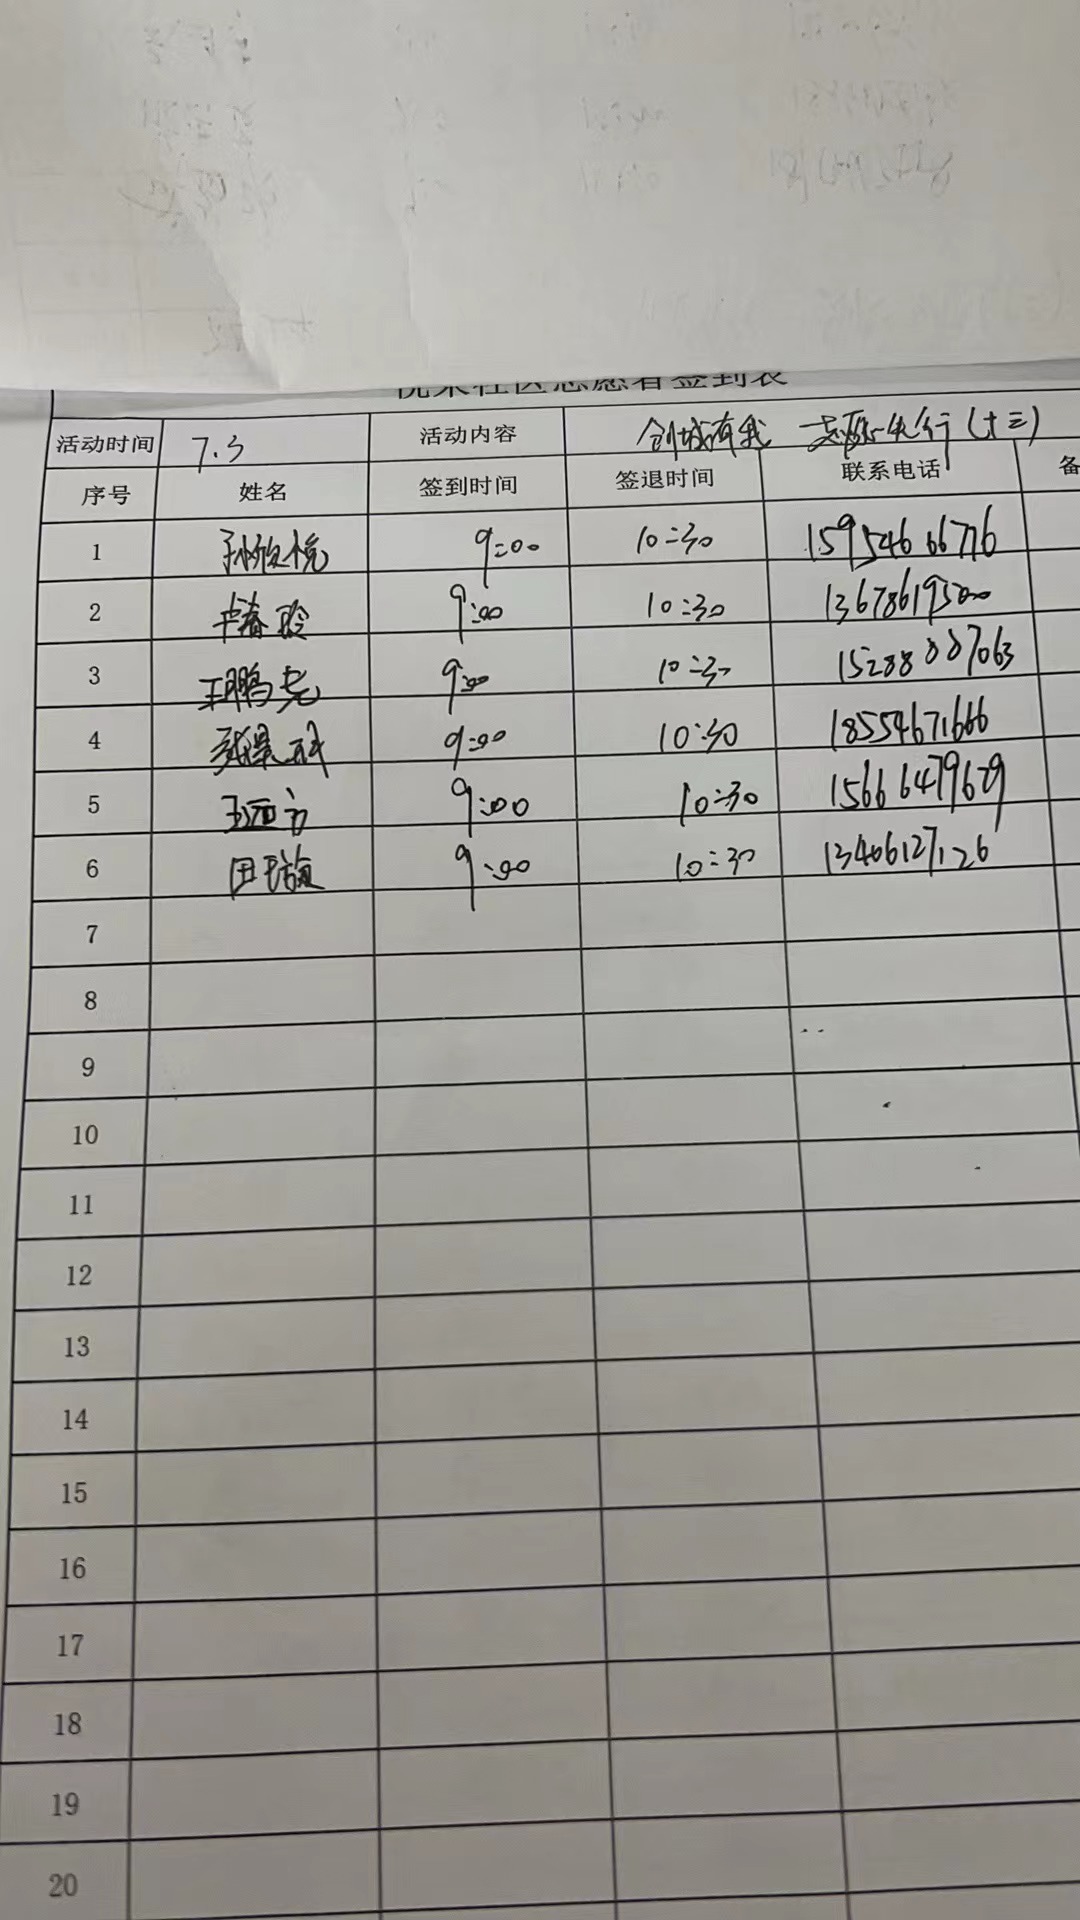 社区志愿者签到表
活动时间 7.3 活动内容 创城有我 志愿先行(十三)
序号 姓名 签到时间 签退时间 联系电话 备
1 孙欣悦 9:00 10:30 15954666776
2 春玲 9:00 10:30 13678619500
3 王鹏尧 9:00 10:30 15288887063
4 9:00 10:30 18554671666
5 王西方 9:00 10:30 15666479679
6 田瑞 9:00 10:30 13406127126
7
8
9
10
11
12
13
14
15
16
17
18
19
20